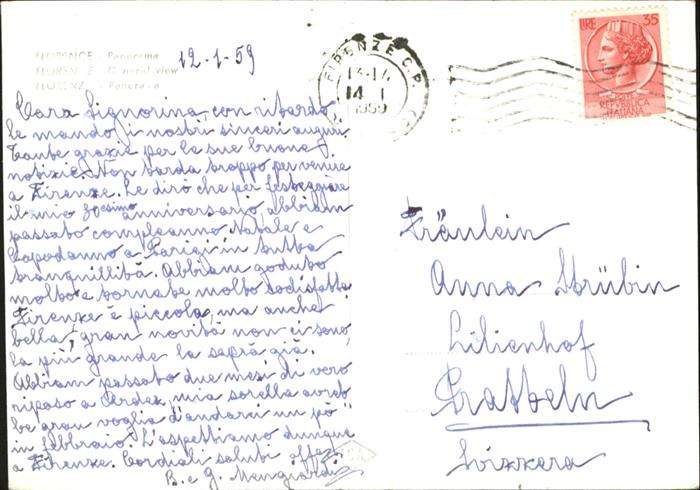 FLORENCE - Panorama
FLORENCE - General view
FLORENZ - Panorama
12-1-59
FIRENZE C.P.
13-14
14 I
1959
LIRE 35
REPUBBLICA
ITALIANA
Cara Signorina, con ritardo,
le mando i nostri sinceri auguri
tante grazie per le sue buone
notizie. Non tarda troppo per venire
a Firenze. Le dirò che per festeggiare
il mio anniversario abbiam
passato compleanno Natale e
Capodanno a Parigi in tutta
tranquillità. Abbiam goduto
molto e tornate molto sodisfatte
Firenze è piccola, ma anche
bella, gran novità non ci sono,
la più grande la saprà già.
Abbiam passato due mesi di vero
riposo a Ardez, mia sorella avreb
be gran voglia d'andarci un pò
in febbraio. L'aspettiamo dunque
a Firenze. Cordiali saluti
B. e G. Mengiardi
Fräulein
Anna Strübin
Lilienhof
Pratteln
Svizzera